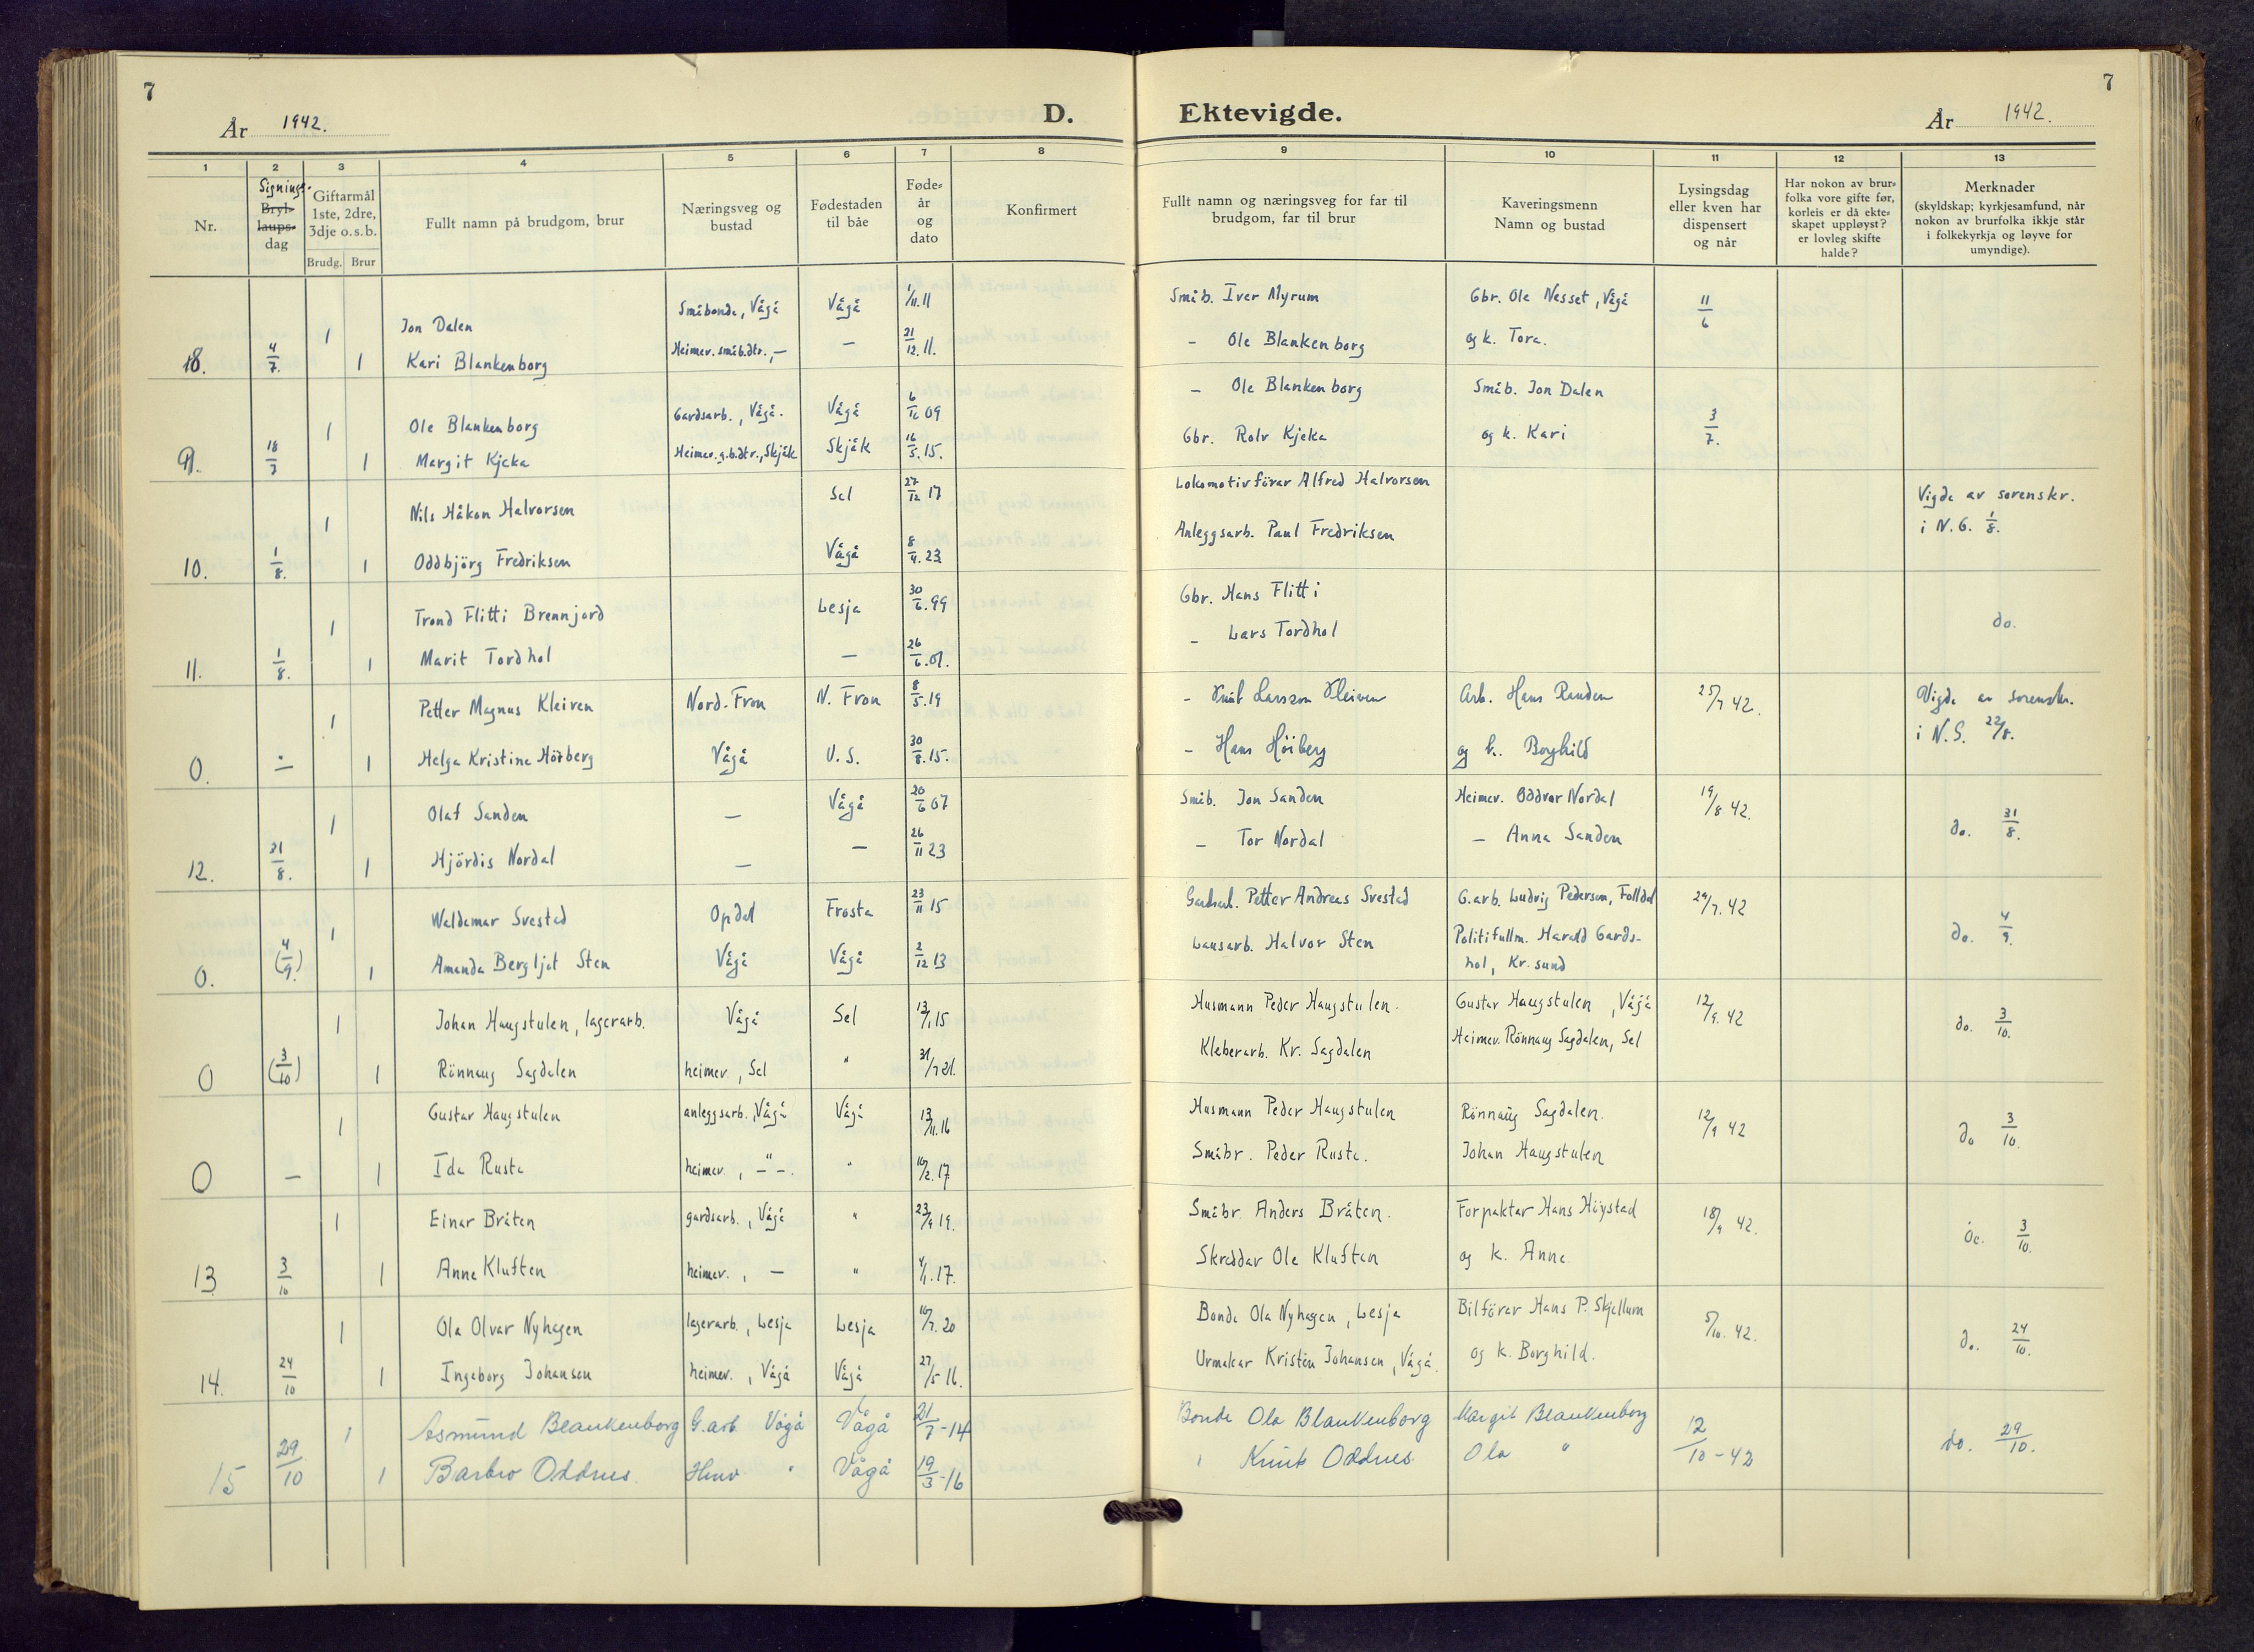 7
År 1942.
D. Ektevigde.
År 1942.
7
1 2 3 4 5 6 7 8 9 10 11 12 13
Nr.
Signings-
Bryl-
laups-
dag
Giftarmål
1ste, 2dre,
3dje o.s.b.
Brudg. Brur
Fullt namn på brudgom, brur
Næringsveg og
bustad
Fødestaden
til båe
Føde-
år
og
dato
Konfirmert
Fullt namn og næringsveg for far til
brudgom, far til brur
Kaveringsmenn
Namn og bustad
Lysingsdag
eller kven har
dispensert
og når
Har nokon av brur-
folka vore gifte før,
korleis er då ekte-
skapet uppløyst?
er lovleg skifte
halde?
Merknader
(skyldskap; kyrkjesamfund, når
nokon av brurfolka ikkje står
i folkekyrkja og løyve for
umyndige).
1 Jon Dalen Småbonde, Vågå Vågå 1/11.11 Småb. Iver Myrum Gbr. Ole Nesset, Vågå 11/6
8. 4/7. 1 Kari Blankenborg Heimev. småb.dtr., — — 21/12.11. - Ole Blankenborg og k. Tora.
1 Ole Blankenborg Gardsarb., Vågå. Vågå 6/12 09 - Ole Blankenborg Småb. Jon Dalen 3/7.
9. 18/7 1 Margit Kjeka Heimev. g.b.dtr., Skjåk Skjåk 16/5.15. Gbr. Rolv Kjeka og k. Kari
1 Nils Håkon Halvorsen Sel 27/12 17 Lokomotivförar Alfred Halvorsen Vigde av sorenskr.
10. 1/8. 1 Oddbjörg Fredriksen Vågå 8/4.23 Anleggsarb. Paul Fredriksen i N.G. 1/8.
1 Trond Flitti Brennjord Lesja 30/6.99 Gbr. Hans Flitti do.
11. 1/8. 1 Marit Tordhol — 26/6.01. - Lars Tordhol
1 Petter Magnus Kleiven Nord-Fron N. Fron 8/5.19 - Knut Larsson Kleiven Arb. Hans Randen 25/7 42. Vigde av sorenskr.
0. — 1 Helga Kristine Höiberg Vågå U.S. 30/8.15. - Hans Höiberg og k. Borghild i N.G. 22/8.
1 Olaf Sanden — Vågå 20/6 07 Småb. Jon Sanden Heimev. Oddvar Nordal 19/8 42. do. 31/8.
12. 31/8. 1 Hjördis Nordal — — 26/11 23 - Tor Nordal — Anna Sanden
1 Waldemar Svestad Opdal Frosta 23/11 15 Gardsarb. Petter Andreas Svestad G.arb. Ludvig Pedersen, Folldal 24/7. 42 do. 4/9.
0. (4/9.) 1 Amanda Bergljot Sten Vågå Vågå 2/12 13 Lausarb. Halvor Sten Politifullm. Harald Gards-
hol, Kr.sund
1 Johan Haugstulen, lagerarb. Vågå Sel 13/1 15 Husmann Peder Haugstulen. Gustav Haugstulen, Vågå 12/9. 42 do. 3/10.
0 (3/10) 1 Rönnaug Sagdalen heimev., Sel " 31/7 21. Kleberarb. Kr. Sagdalen Heimev. Rönnaug Sagdalen, Sel
1 Gustav Haugstulen anleggsarb., Vågå Vågå 13/11.16 Husmann Peder Haugstulen Rönnaug Sagdalen. 12/9 42 do 3/10.
0 — 1 Ida Rusta heimev., —"—. " 16/2.17 Småbr. Peder Rusta. Johan Haugstulen
1 Einar Bråten gardsarb., Vågå " 23/9 19. Småbr. Anders Bråten. Forpaktar Hans Höystad 18/9 42. do. 3/10.
13 3/10 1 Anne Kluften heimev., — " 4/1.17. Skreddar Ole Kluften og k. Anne.
1 Ola Olvar Nyhagen lagerarb., Lesja Lesja 16/7.20 Bonde Ola Nyhagen, Lesja Bilförar Hans P. Skjellum 5/10. 42. do. 24/10.
14. 24/10 1 Ingeborg Johansen heimev., Vågå Vågå 27/5 16. Urmakar Kristen Johansen, Vågå. og k. Borghild.
1 Asmund Blankenborg G.arb. Vågå Vågå 21/7-14 Bonde Ola Blankenborg Margit Blankenborg 12/10-42 do. 29/10.
15 29/10 1 Barbro Oddnes. Heimv " Vågå 19/3-16 " Knut Oddnes. Ola "